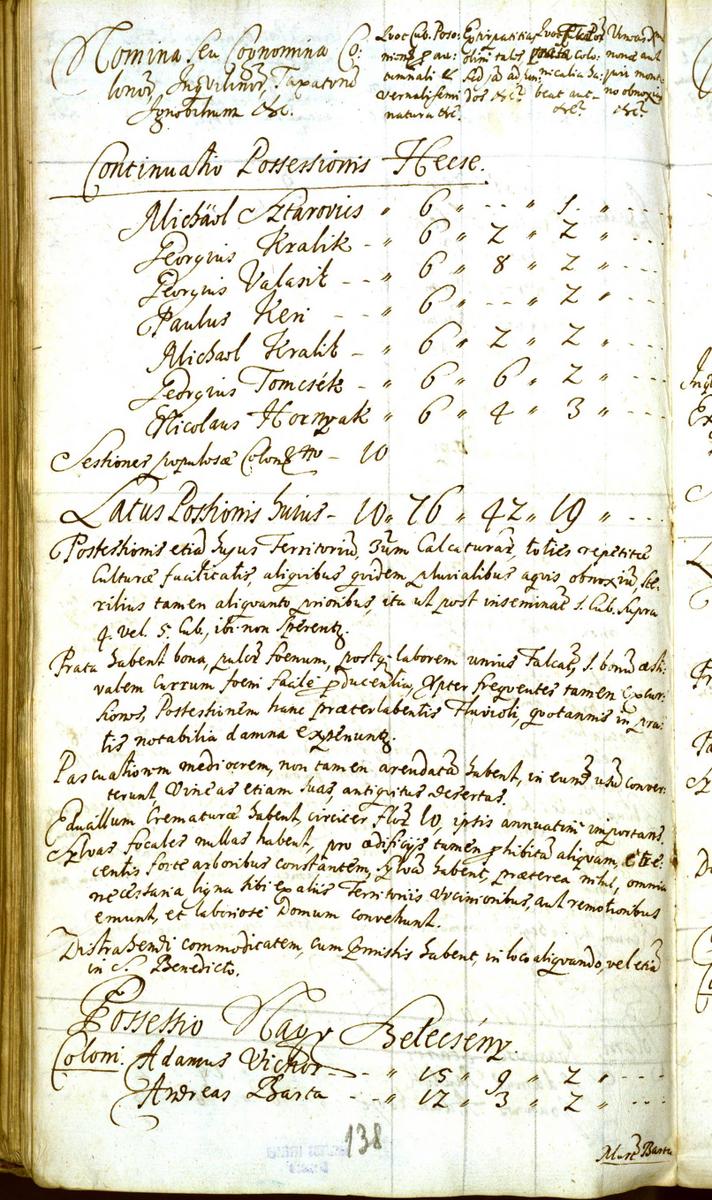 Nomina seu Cognomina Co:
lonor̃, Inqvilinor̃, Taxator̃
Ignobilium &c.
Quot Cub. Poso:
niens. p au:
tumnali et
vernali semi
natura &c.
Extirpatitia
olim tales
sed jam ad
dos &c.
Quot Falcat̃
prata Colo:
nicalia ha:
beat aut
&c.
Vineas
nonas aut
quis mont:
no obnoxias
&c.
Continuatio Possessionis Hecse.
Michäel Sztarovics " 6 " -- " 1. " ---
Georgius Kralik - " 6 " 2 " 2 " ---
Georgius Valasik -- " 6 " 8 " 2 " ---
Paulus Keri - " 6 " -- " 2 " ---
Michael Kralik - " 6 " 2 " 2 " ---
Georgius Tomcsék - " 6 " 6 " 2 " ---
Nicolaus Hornyak " 6 " 4 " 3 " ---
Sessiones populosæ Colon - 10
Latus Possionis hujus - 10 " 76 " 42 " 19 " ---
Possessionis etiã hujus Territoriũ, 3um Calcaturæ, toties repetitæ
Culturæ facilitatis, aliqvibus qvidem pluvialibus aqvis obnoxiũ ste:
rilius tamen aliqvanto prioribus, ita ut post inseminat̃ 1. Cub. supra
4. vel. 5. Cub, ibi non sperentr.
Prata habent bona, pulcr̃ foenum, postqz laborem unius Falcat̃, 1. bonũ æsti:
valem Currum foeni facile pducentia, Xpter freqventes tamen excur:
siones, Possessionem hanc præterlabentis Fluvioli, qvotannis in pra:
tis notabilia damna expenuntr.
Pascuationem mediocrem, non tamen arendatã habent, in eumqz usũ conver:
terunt Vineas etiam suas, antiqvitus desertas.
Educillum Crematuræ habent, circiter flor̃ 10, ipsis annuatim importans.
Sylvas focales nullas habent, pro ædificijs tamen phibitã aliqvam, et re:
centis forte arboribus constantem, sylvã habent, præterea nihil, omnia
necessaria ligna sibi ex aliis Territoriis vicinioribus, aut remotioribus
emunt, et laboriose Domum convehunt.
Distrahendi commoditatem, cum pmissis habent, in loco aliqvando, vel etiã
in S. Benedicto.
Possessio Nagy Belecsény.
Coloni: Adamus Vichor - " 15 " 9 " 2 " ---
Andreas Barta -- " 12 " 3 " 2 " ---
138
Mart̃ Barta